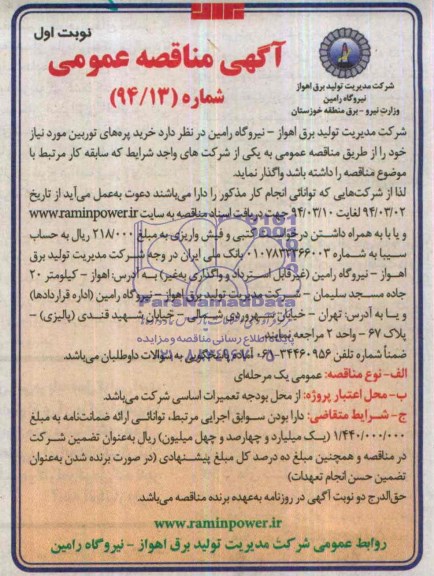 نوبت اول
آگهی مناقصه عمومی
شماره (۹۴/۱۳)
شرکت مدیریت تولید برق اهواز
نیروگاه رامین
وزارت نیرو - برق منطقه خوزستان
شرکت مدیریت تولید برق اهواز - نیروگاه رامین در نظر دارد خرید پره‌های توربین مورد نیاز
خود را از طریق مناقصه عمومی به یکی از شرکت های واجد شرایط که سابقه کار مرتبط با
موضوع مناقصه را داشته باشد واگذار نماید.
لذا از شرکت‌هایی که توانائی انجام کار مذکور را دارا می‌باشند دعوت به‌عمل می‌آید از تاریخ
۹۴/۰۳/۰۲ لغایت ۹۴/۰۳/۱۰ جهت دریافت اسناد مناقصه به سایت www.raminpower.ir
و یا با به همراه داشتن درخواست کتبی و فیش واریزی به مبلغ ۲۱۸/۰۰۰ ریال به حساب
سیبا به شماره ۰۱۰۷۸۳۳۳۶۶۰۰۳ بانک ملی ایران در وجه شرکت مدیریت تولید برق
اهواز - نیروگاه رامین (غیرقابل استرداد و واگذاری به‌غیر) به آدرس: اهواز - کیلومتر ۲۰
جاده مسجد سلیمان - شرکت مدیریت تولید برق اهواز - نیروگاه رامین (اداره قراردادها)
و یا به آدرس: تهران - خیابان سهروردی شمالی - خیابان شهید قندی (پالیزی) -
پلاک ۶۷ - واحد ۲ مراجعه نمایند.
ضمناً شماره تلفن ۳۴۴۶۰۹۵۶-۰۶۱ آماده پاسخگویی به سؤالات داوطلبان می‌باشد.
الف- نوع مناقصه: عمومی یک مرحله‌ای
ب- محل اعتبار پروژه: از محل بودجه تعمیرات اساسی شرکت می‌باشد.
ج- شرایط متقاضی: دارا بودن سوابق اجرایی مرتبط، توانائی ارائه ضمانت‌نامه به مبلغ
۱/۴۴۰/۰۰۰/۰۰۰ (یک میلیارد و چهارصد و چهل میلیون) ریال به‌عنوان تضمین شرکت
در مناقصه و همچنین مبلغ ده درصد کل مبلغ پیشنهادی (در صورت برنده شدن به‌عنوان
تضمین حسن انجام تعهدات)
حق‌الدرج دو نوبت آگهی در روزنامه به‌عهده برنده مناقصه می‌باشد.
www.raminpower.ir
روابط عمومی شرکت مدیریت تولید برق اهواز - نیروگاه رامین
ParsNamadData
پایگاه اطلاع رسانی مناقصه و مزایده